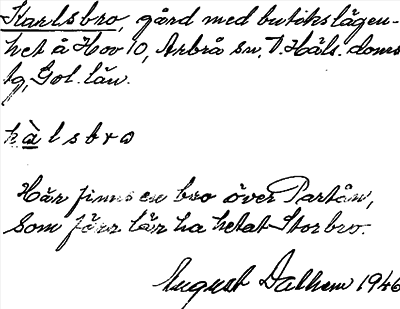 Karlsbro, gård med butikslägen-
het å Hov 10, Arbrå sn, V. Häls. doms
tg, Gol. län.
kàlsbro
Här finns en bro över Partån,
som förr lär ha hetat Storbro.
August Dalhem 1946